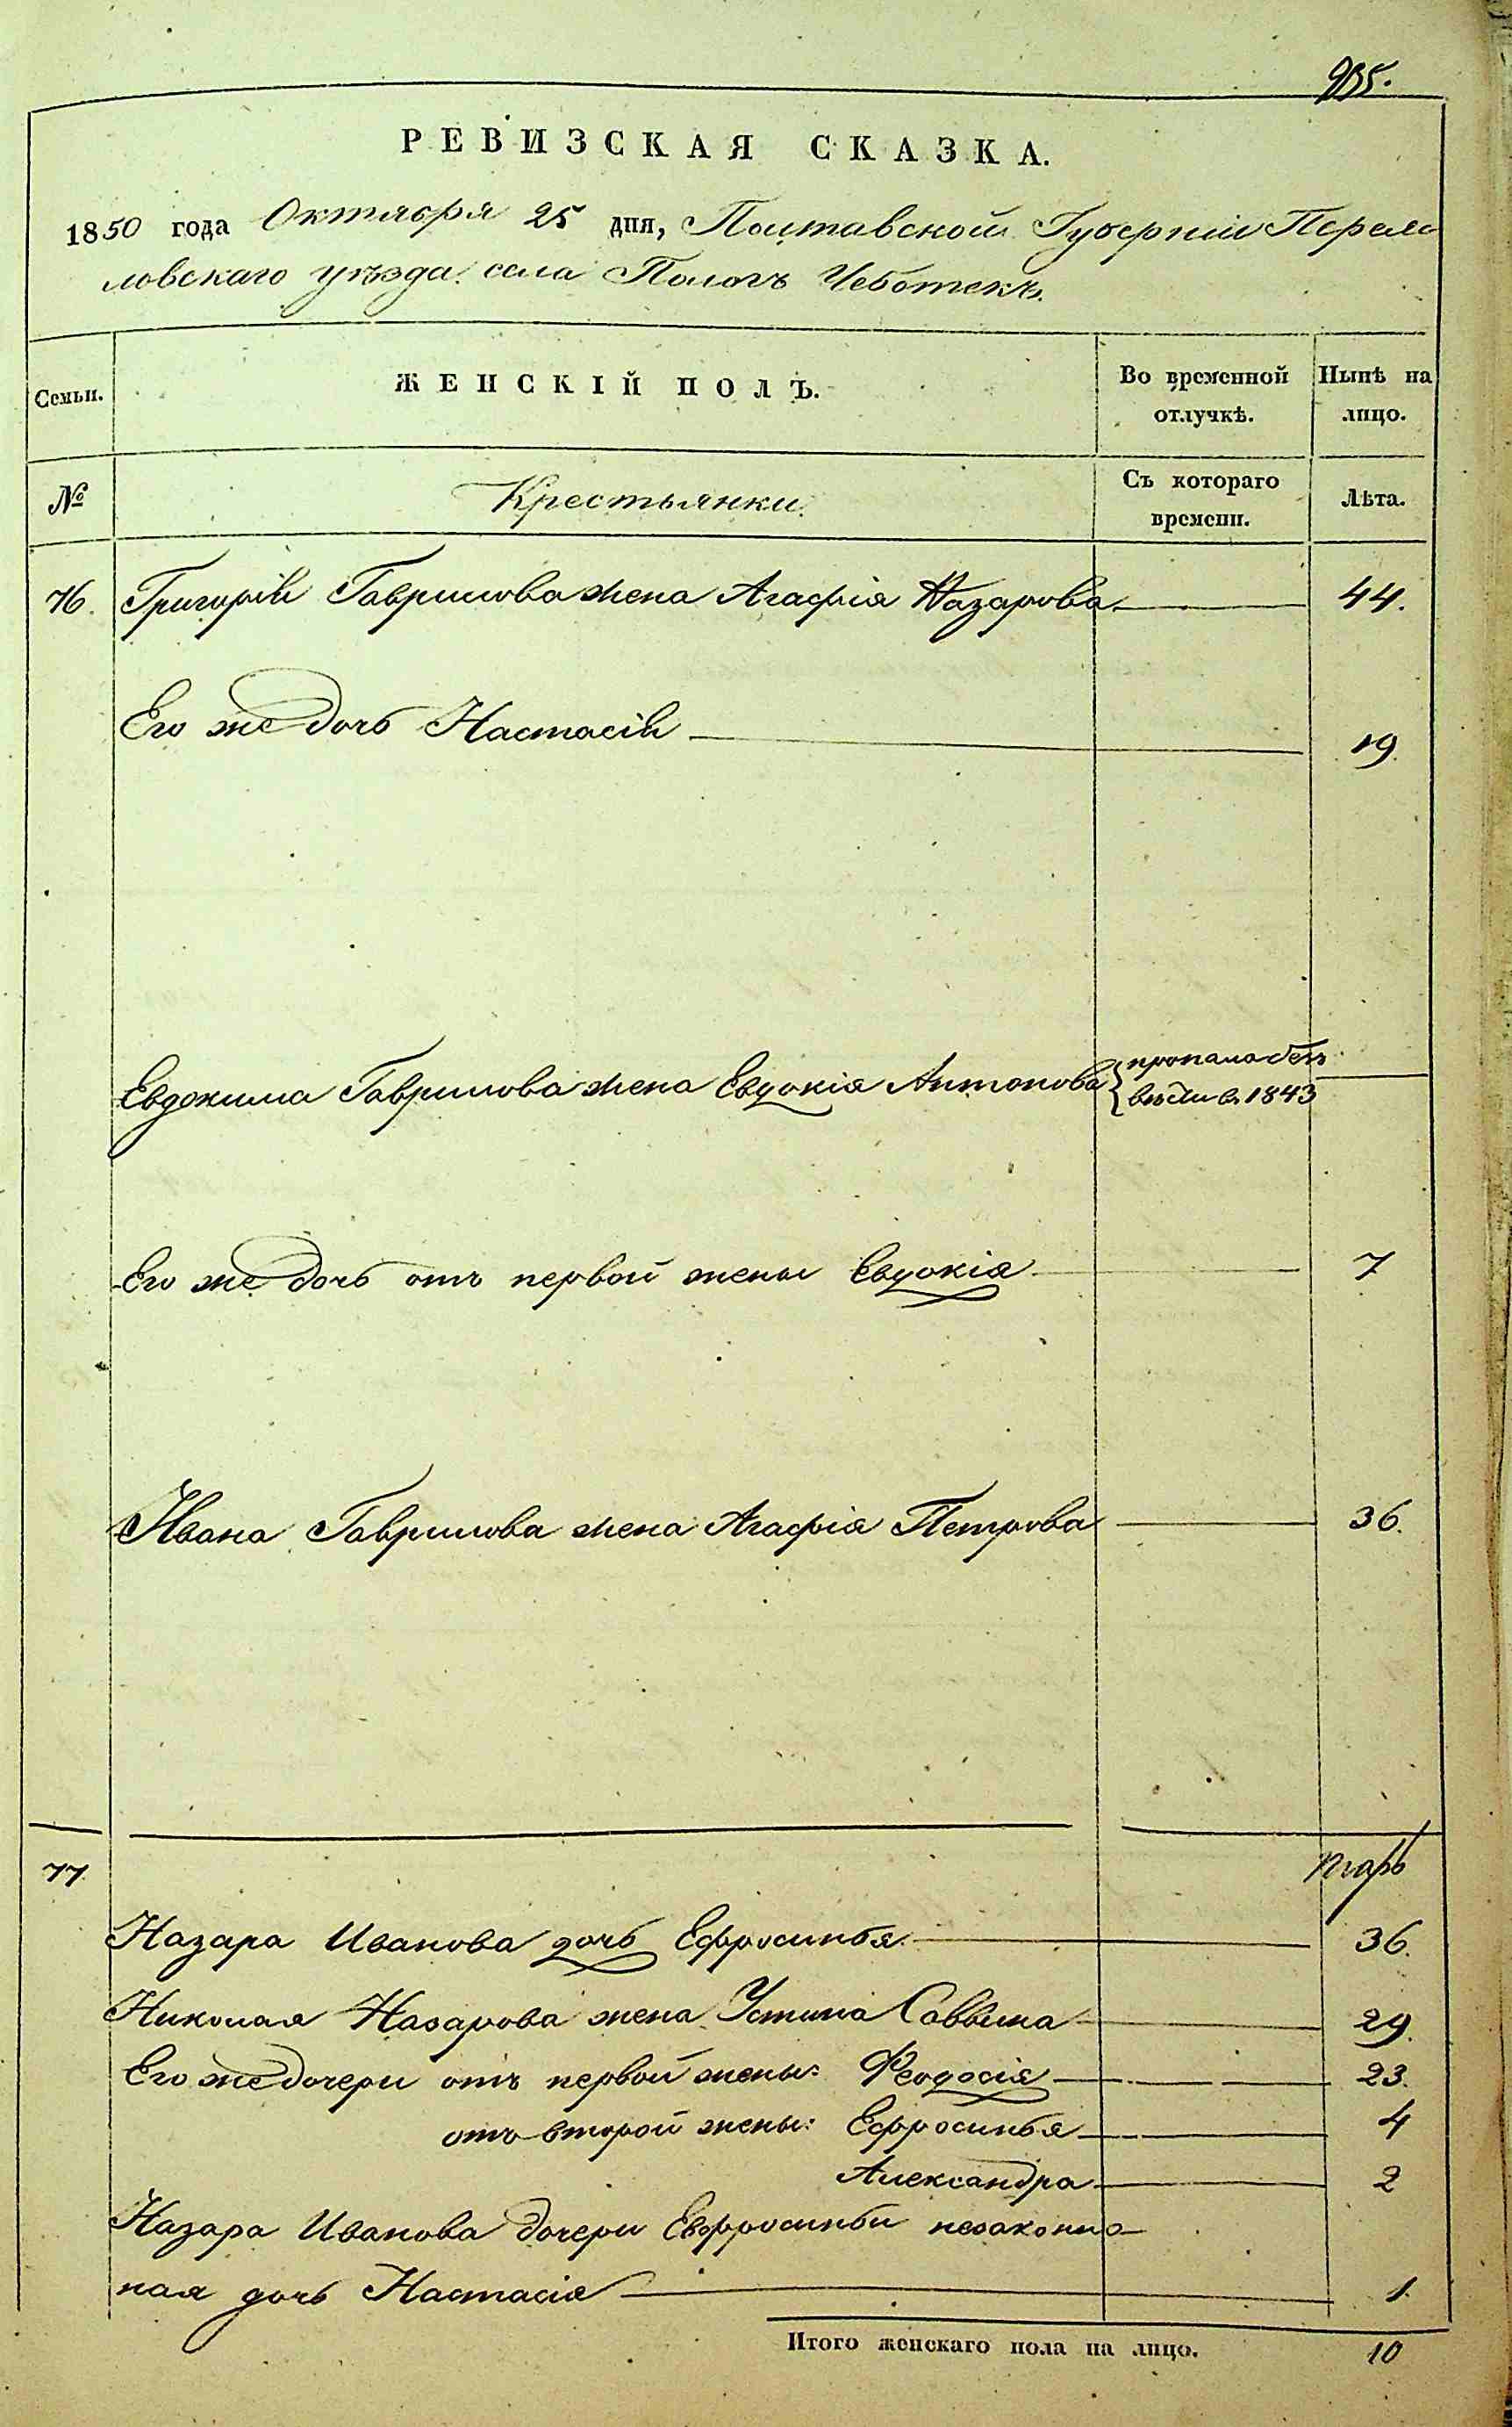 935.
РЕВИЗСКАЯ СКАЗКА.
1850 года Октября 25 дня, Полтавской Губерніи Переяс
ловскаго уѣзда села Пологъ Чеботекъ.
Семьи. ЖЕНСКІЙ ПОЛЪ. Во временной отлучкѣ. Нынѣ на лицо.
№ Крестьянки. Съ котораго времени. Лѣта.
76. Григорія Гаврилова жена Агафія Назарова 44.
Его же дочь Настасія 19.
Евдокима Гаврилова жена Евдокія Антонова пропала безъ
вѣсти въ 1843
Его же дочь отъ первой жены Евдокія 7
Ивана Гаврилова жена Агафія Петрова 36.
77.
Назара Иванова дочь Ефросинья 36.
Николая Назарова жена Устина Саввина 29.
Его же дочери отъ первой жены: Феодосія 23.
отъ второй жены: Ефросинья 4
Александра 2
Назара Иванова дочери Евфросиньи незаконно-
ная дочь Настасія 1.
Итого женскаго пола на лицо. 10